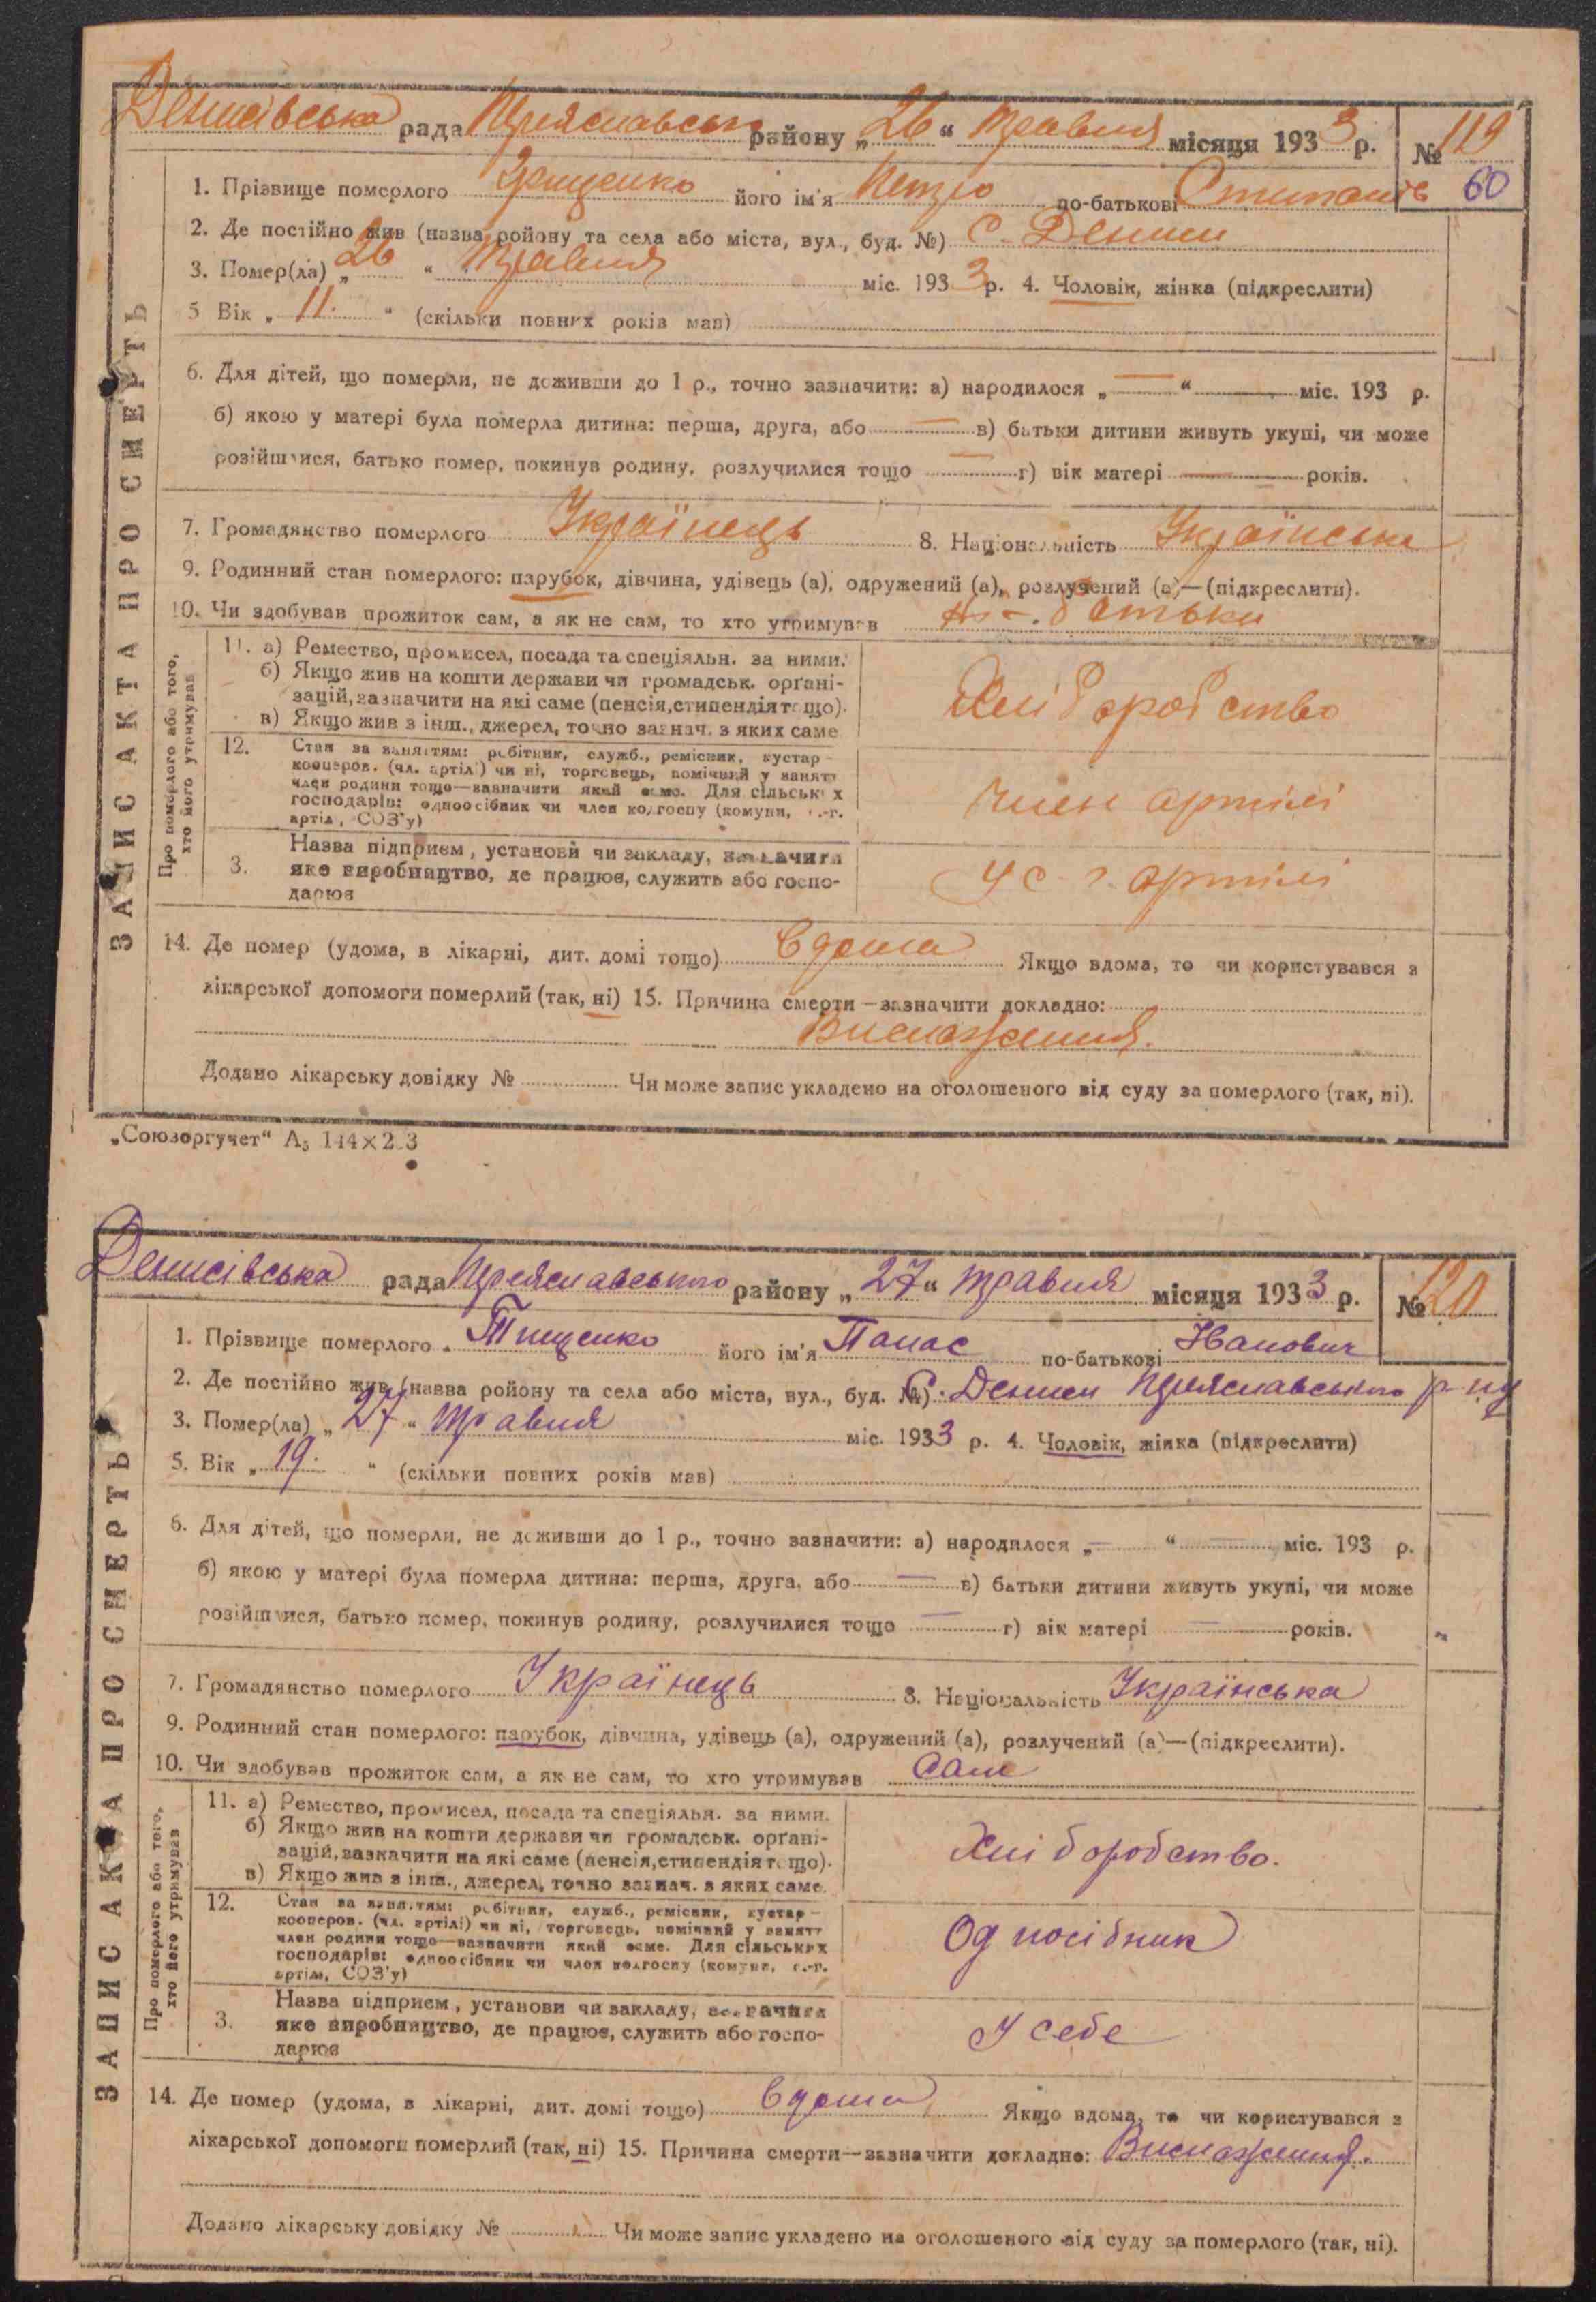 Денисівська рада Переяславськ району „26“ травня місяця 1933 р. № 119
60
1. Прізвище померлого Грищенко його ім'я Петро по-батькові
2. Де постійно жив (назва ройону та села або міста, вул., буд. №) с. Дениси
3. Помер(ла) „26“ травня міс. 1933 р. 4. Чоловік, жінка (підкреслити)
5 Вік „11.“ (скільки повних років мав)
6. Для дітей, що померли, не доживши до 1 р., точно зазначити: а) народилося „—“ — міс. 193 р.
б) якою у матері була померла дитина: перша, друга, або — в) батьки дитини живуть укупі, чи може
розійшлися, батько помер, покинув родину, розлучилися тощо — г) вік матері — років.
7. Громадянство померлого Українець 8. Національність Українська
9. Родинний стан померлого: парубок, дівчина, удівець (а), одружений (а), розлучений (а)—(підкреслити).
10. Чи здобував прожиток сам, а як не сам, то хто утримував батьки
ЗАПИС АКТА ПРО СМЕРТЬ
Про померлого або того, хто його утримував
11. а) Ремество, промисел, посада та спеціяльн. за ними.
б) Якщо жив на кошти держави чи громадськ. органі-
зацій, зазначити на які саме (пенсія, стипендія тощо).
в) Якщо жив з інш., джерел, точно зазнач. з яких саме
Хліборобство
12. Стан за заняттям: робітник, служб., ремісник, кустар-
кооперов. (чл. артілі) чи ні, торговець, помічний у занятт
член родини тощо—зазначити який саме. Для сільських
господарів: одноосібник чи член колгоспу (комуни, с.-г.
артіл, СОЗ'у)
член артілі
3. Назва підприєм, установи чи закладу, зазначити
яке виробництво, де працює, служить або госпо-
дарює
у с. г. артілі
14. Де помер (удома, в лікарні, дит. домі тощо) вдома Якщо вдома, то чи користувався з
лікарської допомоги померлий (так, ні) 15. Причина смерти—зазначити докладно:
Виснаження.
Додано лікарську довідку № Чи може запис укладено на оголошеного від суду за померлого (так, ні).
„Союзоргучет“ А₅ 144×2_3
Денисівська рада Переяславського району „27“ травня місяця 1933 р. № 120
1. Прізвище померлого Тищенко його ім'я Панас по-батькові Іванович
2. Де постійно жив (назва ройону та села або міста, вул., буд. №) с. Дениси Переяславського р-ну
3. Помер(ла) „27“ травня міс. 1933 р. 4. Чоловік, жінка (підкреслити)
5. Вік „19.“ (скільки повних років мав)
6. Для дітей, що померли, не доживши до 1 р., точно зазначити: а) народилося „—“ — міс. 193 р.
б) якою у матері була померла дитина: перша, друга, або — в) батьки дитини живуть укупі, чи може
розійшлися, батько помер, покинув родину, розлучилися тощо — г) вік матері — років.
7. Громадянство померлого Українець 8. Національність Українська
9. Родинний стан померлого: парубок, дівчина, удівець (а), одружений (а), розлучений (а)—(підкреслити).
10. Чи здобував прожиток сам, а як не сам, то хто утримував сам
ЗАПИС АКТА ПРО СМЕРТЬ
Про померлого або того, хто його утримував
11. а) Ремество, промисел, посада та спеціяльн. за ними.
б) Якщо жив на кошти держави чи громадськ. органі-
зацій, зазначити на які саме (пенсія, стипендія тощо).
в) Якщо жив з інш., джерел, точно зазнач. з яких саме.
Хліборобство.
12. Стан за заняттям: робітник, служб., ремісник, кустар-
кооперов. (чл. артілі) чи ні, торговець, помічний у занятт
член родини тощо—зазначити який саме. Для сільських
господарів: одноосібник чи член колгоспу (комуни, с.-г.
артілі, СОЗ'у)
Одноосібник
3. Назва підприєм, установи чи закладу, зазначити
яке виробництво, де працює, служить або госпо-
дарює
У себе
14. Де помер (удома, в лікарні, дит. домі тощо) вдома Якщо вдома, то чи користувався з
лікарської допомоги померлий (так, ні) 15. Причина смерти—зазначити докладно: Виснаження.
Додано лікарську довідку № Чи може запис укладено на оголошеного від суду за померлого (так, ні).